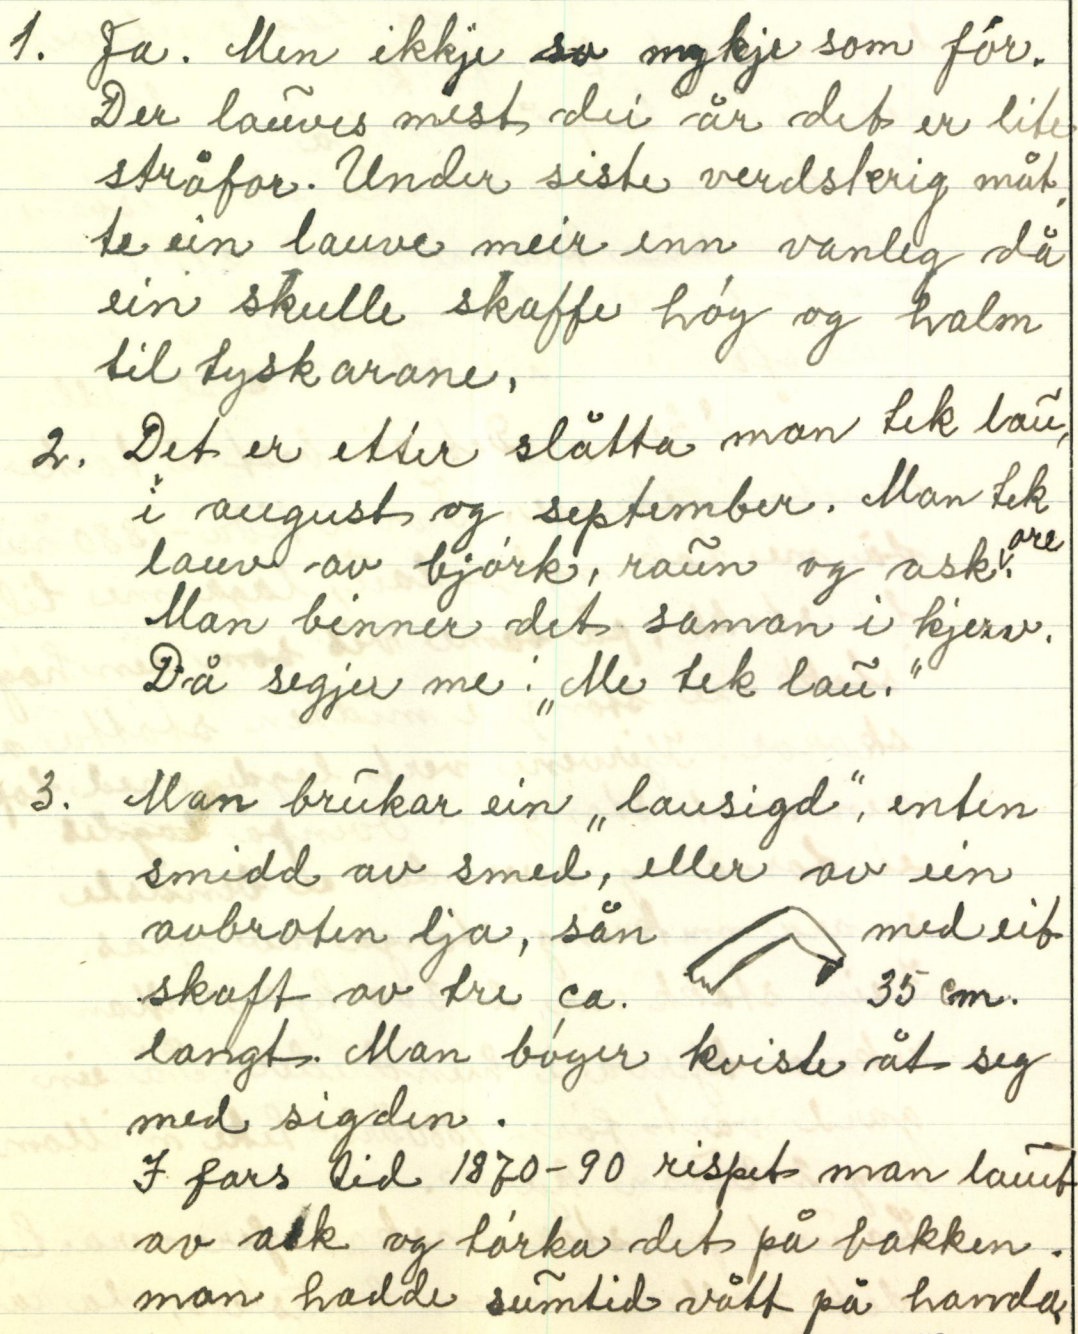 1. Ja. Men ikkje so mykje som fór.
Der lauves mest dei år det er lite
stråfor. Under siste verdskrig måt,
te ein lauve meir enn vanleg då
ein skulle skaffe hóy og halm
til tyskarane.
2. Det er etter slåtta man tek lau,
i august og september. Man tek
lauv av bjórk, raun og ask. ore
Man binner det saman i kjerv.
Då segjer me: „Me tek lau."
3. Man brukar ein „lausigd", enten
smidd av smed, eller av ein
avbroten lja, sån med eit
skaft av tre ca. 35 cm.
langt. Man bóger kviste åt seg
med sigden.
I fars tid 1870-90 rispet man lauet
av ask og tórka det på bakken.
man hadde sumtid vått på handa,